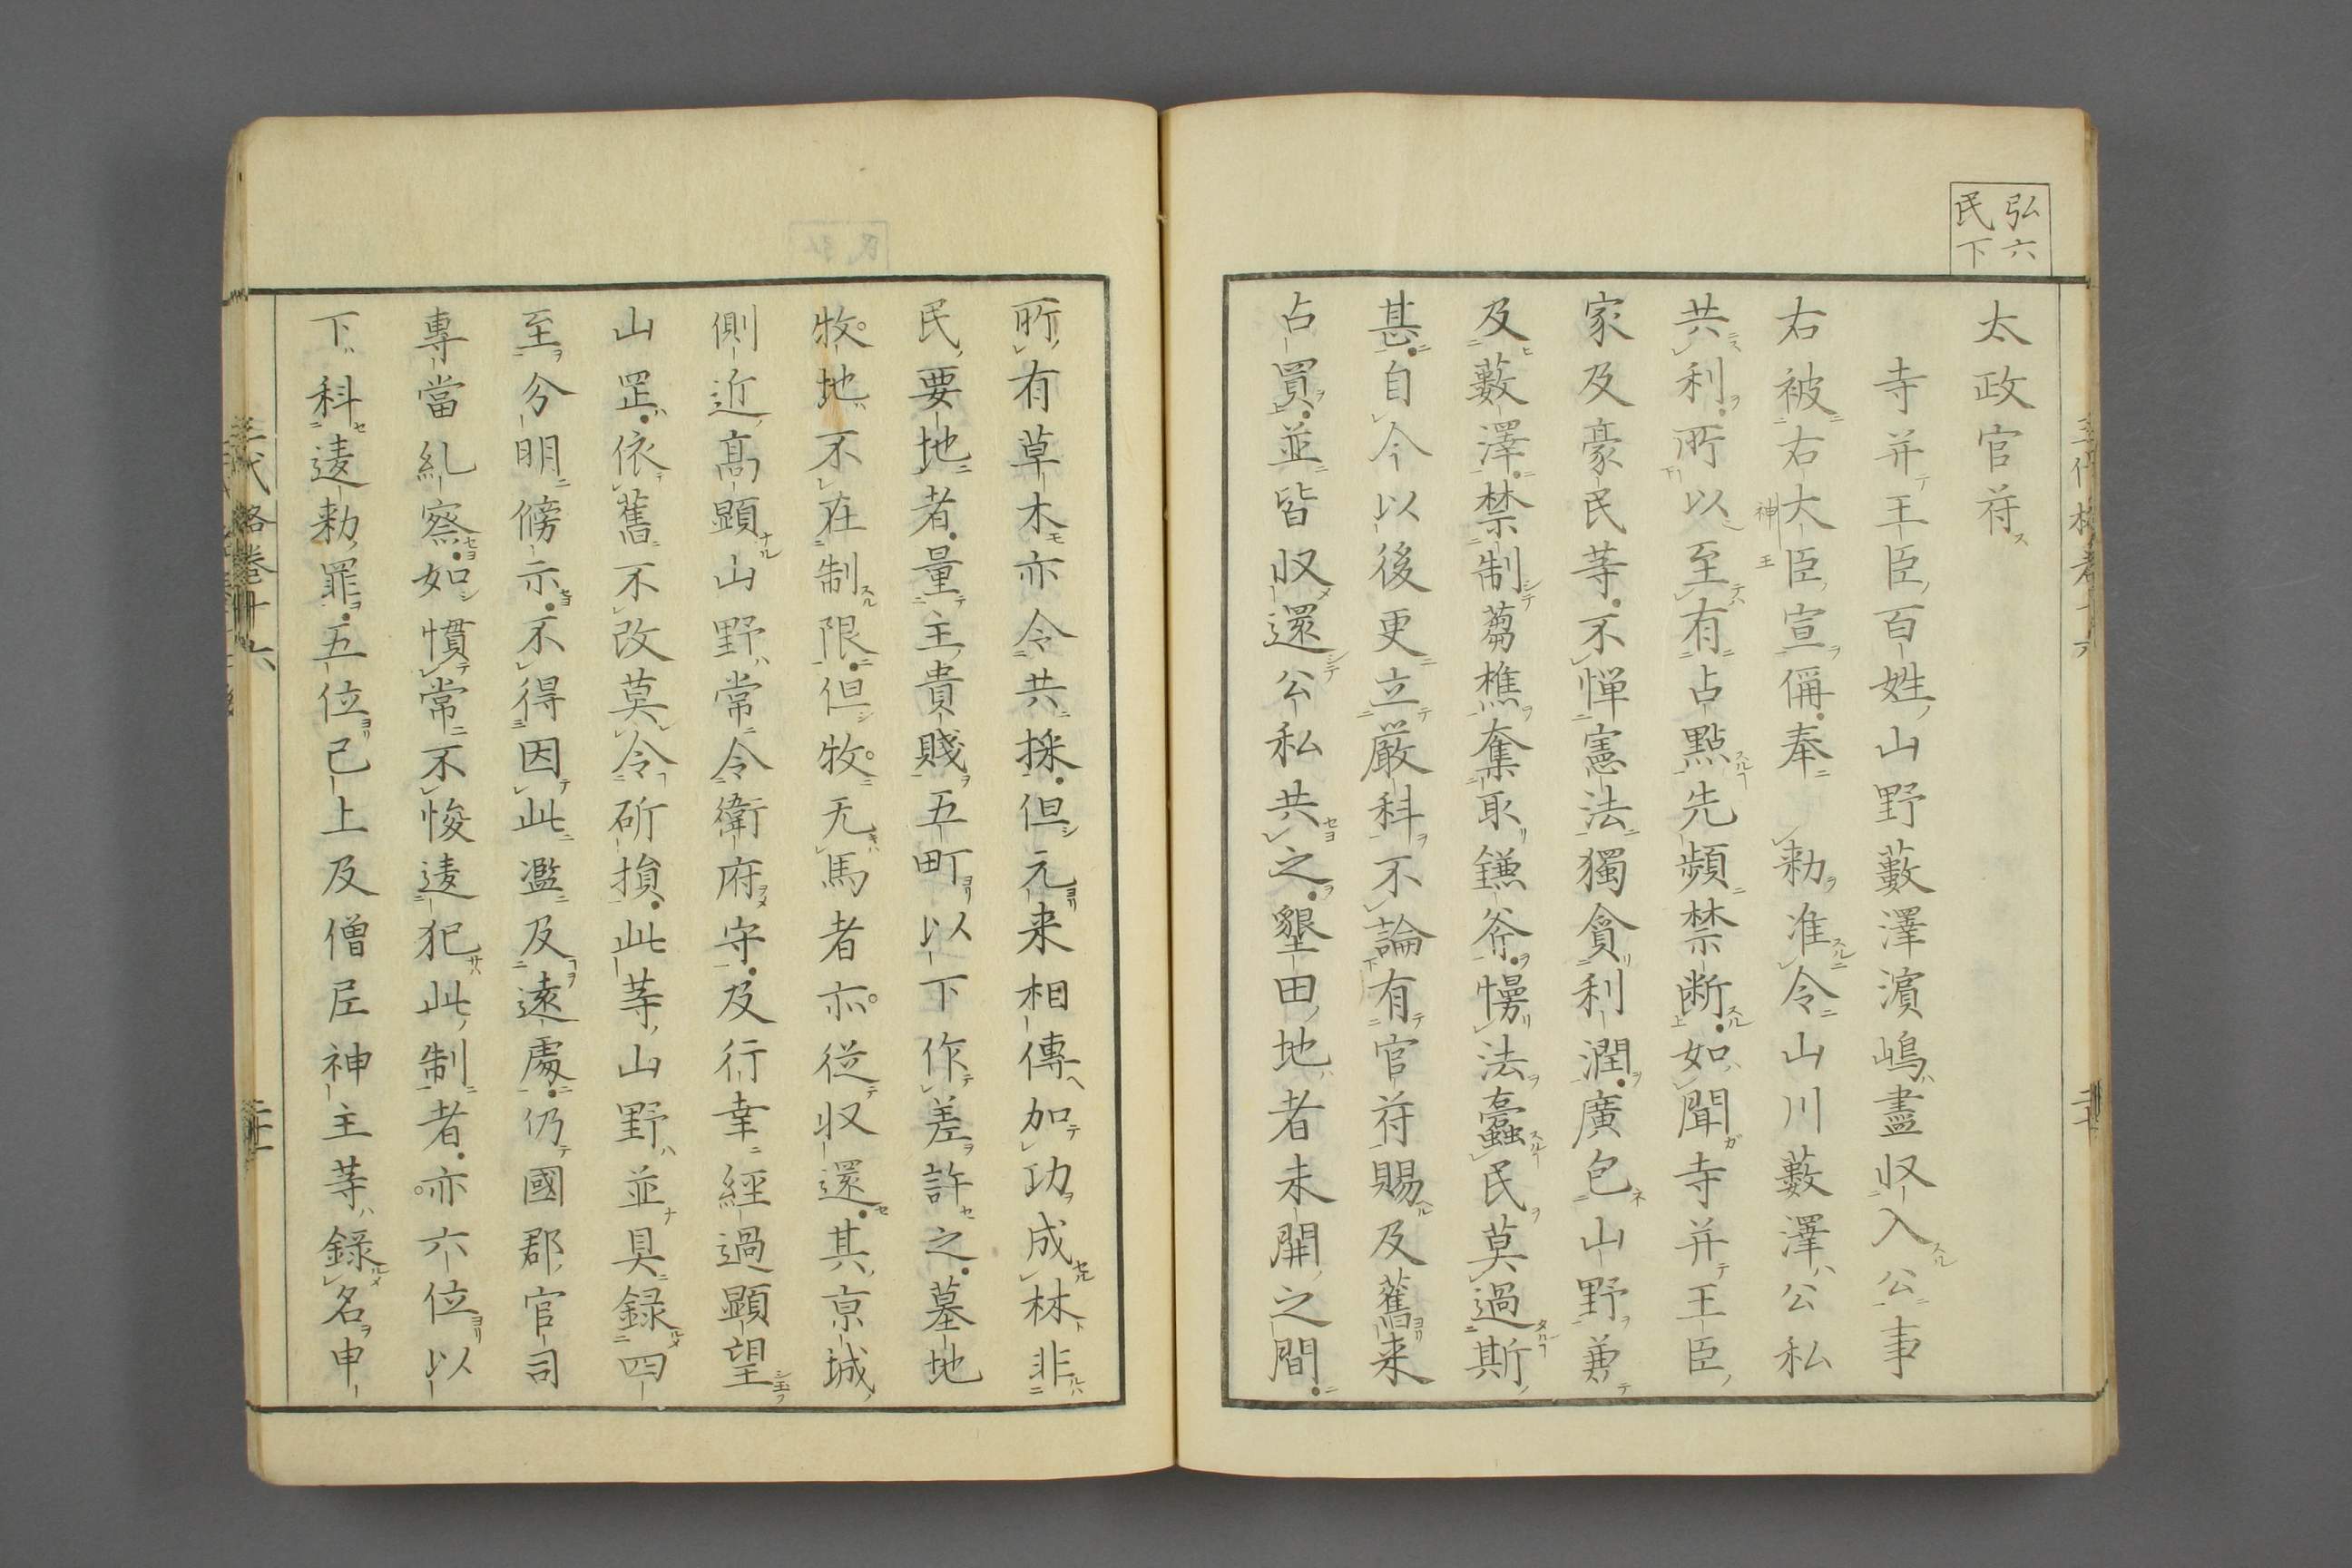 弘六
民下
太政官符
寺并王臣百姓山野藪澤濱嶋盡収入公事
右被右大臣宣偁奉勅准令山川藪澤公私
神王
共利所以至有占點先頻禁断如聞寺并王臣
家及豪民等不憚憲法獨貪利潤廣包山野兼
及藪澤禁制蒭樵奪取鎌斧慢法蠹民莫過斯
甚自今以後更立厳科不論有官符賜及舊来
占買並皆収還公私共之墾田地者未開之間
所有草木亦令共採但元来相傳加功成林非
民要地者量主貴賤五町以下作差許之墓地
牧地不在制限但牧无馬者亦従収還其京城
側近髙顕山野常令衛府守及行幸經過顕望
山罡依舊不改莫令斫損此等山野並具録四
至分明傍示不得因此濫及遠處仍國郡官司
專當糺察如慣常不悛違犯此制者亦六位以
下科違勅罪五位已上及僧尼神主等録名申
三代格巻十六